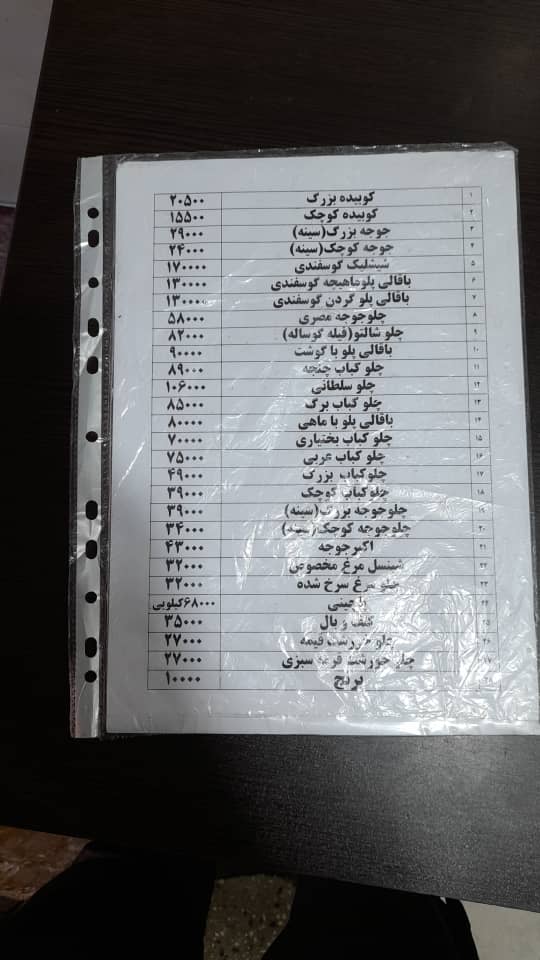 ۱ کوبیده بزرگ ۲۰۵۰۰
۲ کوبیده کوچک ۱۵۵۰۰
۳ جوجه بزرگ(سینه) ۲۹۰۰۰
۴ جوجه کوچک(سینه) ۲۴۰۰۰
۵ شیشلیک گوسفندی ۱۷۰۰۰۰
۶ باقالی پلوماهیچه گوسفندی ۱۳۰۰۰۰
۷ باقالی پلو گردن گوسفندی ۱۳۰۰۰۰
۸ چلوجوجه مصری ۵۸۰۰۰
۹ چلو شالتو(فیله گوساله) ۸۲۰۰۰
۱۰ باقالی پلو با گوشت ۹۰۰۰۰
۱۱ چلو کباب چنجه ۸۹۰۰۰
۱۲ چلو سلطانی ۱۰۶۰۰۰
۱۳ چلو کباب برگ ۸۵۰۰۰
۱۴ باقالی پلو با ماهی ۸۰۰۰۰
۱۵ چلو کباب بختیاری ۷۰۰۰۰
۱۶ چلو کباب عربی ۷۵۰۰۰
۱۷ چلوکباب بزرگ ۴۹۰۰۰
۱۸ چلوکباب کوچک ۳۹۰۰۰
۱۹ چلوجوجه بزرگ(سینه) ۳۹۰۰۰
۲۰ چلوجوجه کوچک(سینه) ۳۴۰۰۰
۲۱ اکبرجوجه ۴۳۰۰۰
۲۲ شینسل مرغ مخصوص ۳۲۰۰۰
۲۳ چلو مرغ سرخ شده ۳۲۰۰۰
۲۴ ۶۸۰۰۰کیلویی
۲۵ کتف و بال ۳۵۰۰۰
۲۶ چلو خورشت قیمه ۲۷۰۰۰
۲۷ چلو خورشت قرمه سبزی ۲۷۰۰۰
برنج ۱۰۰۰۰